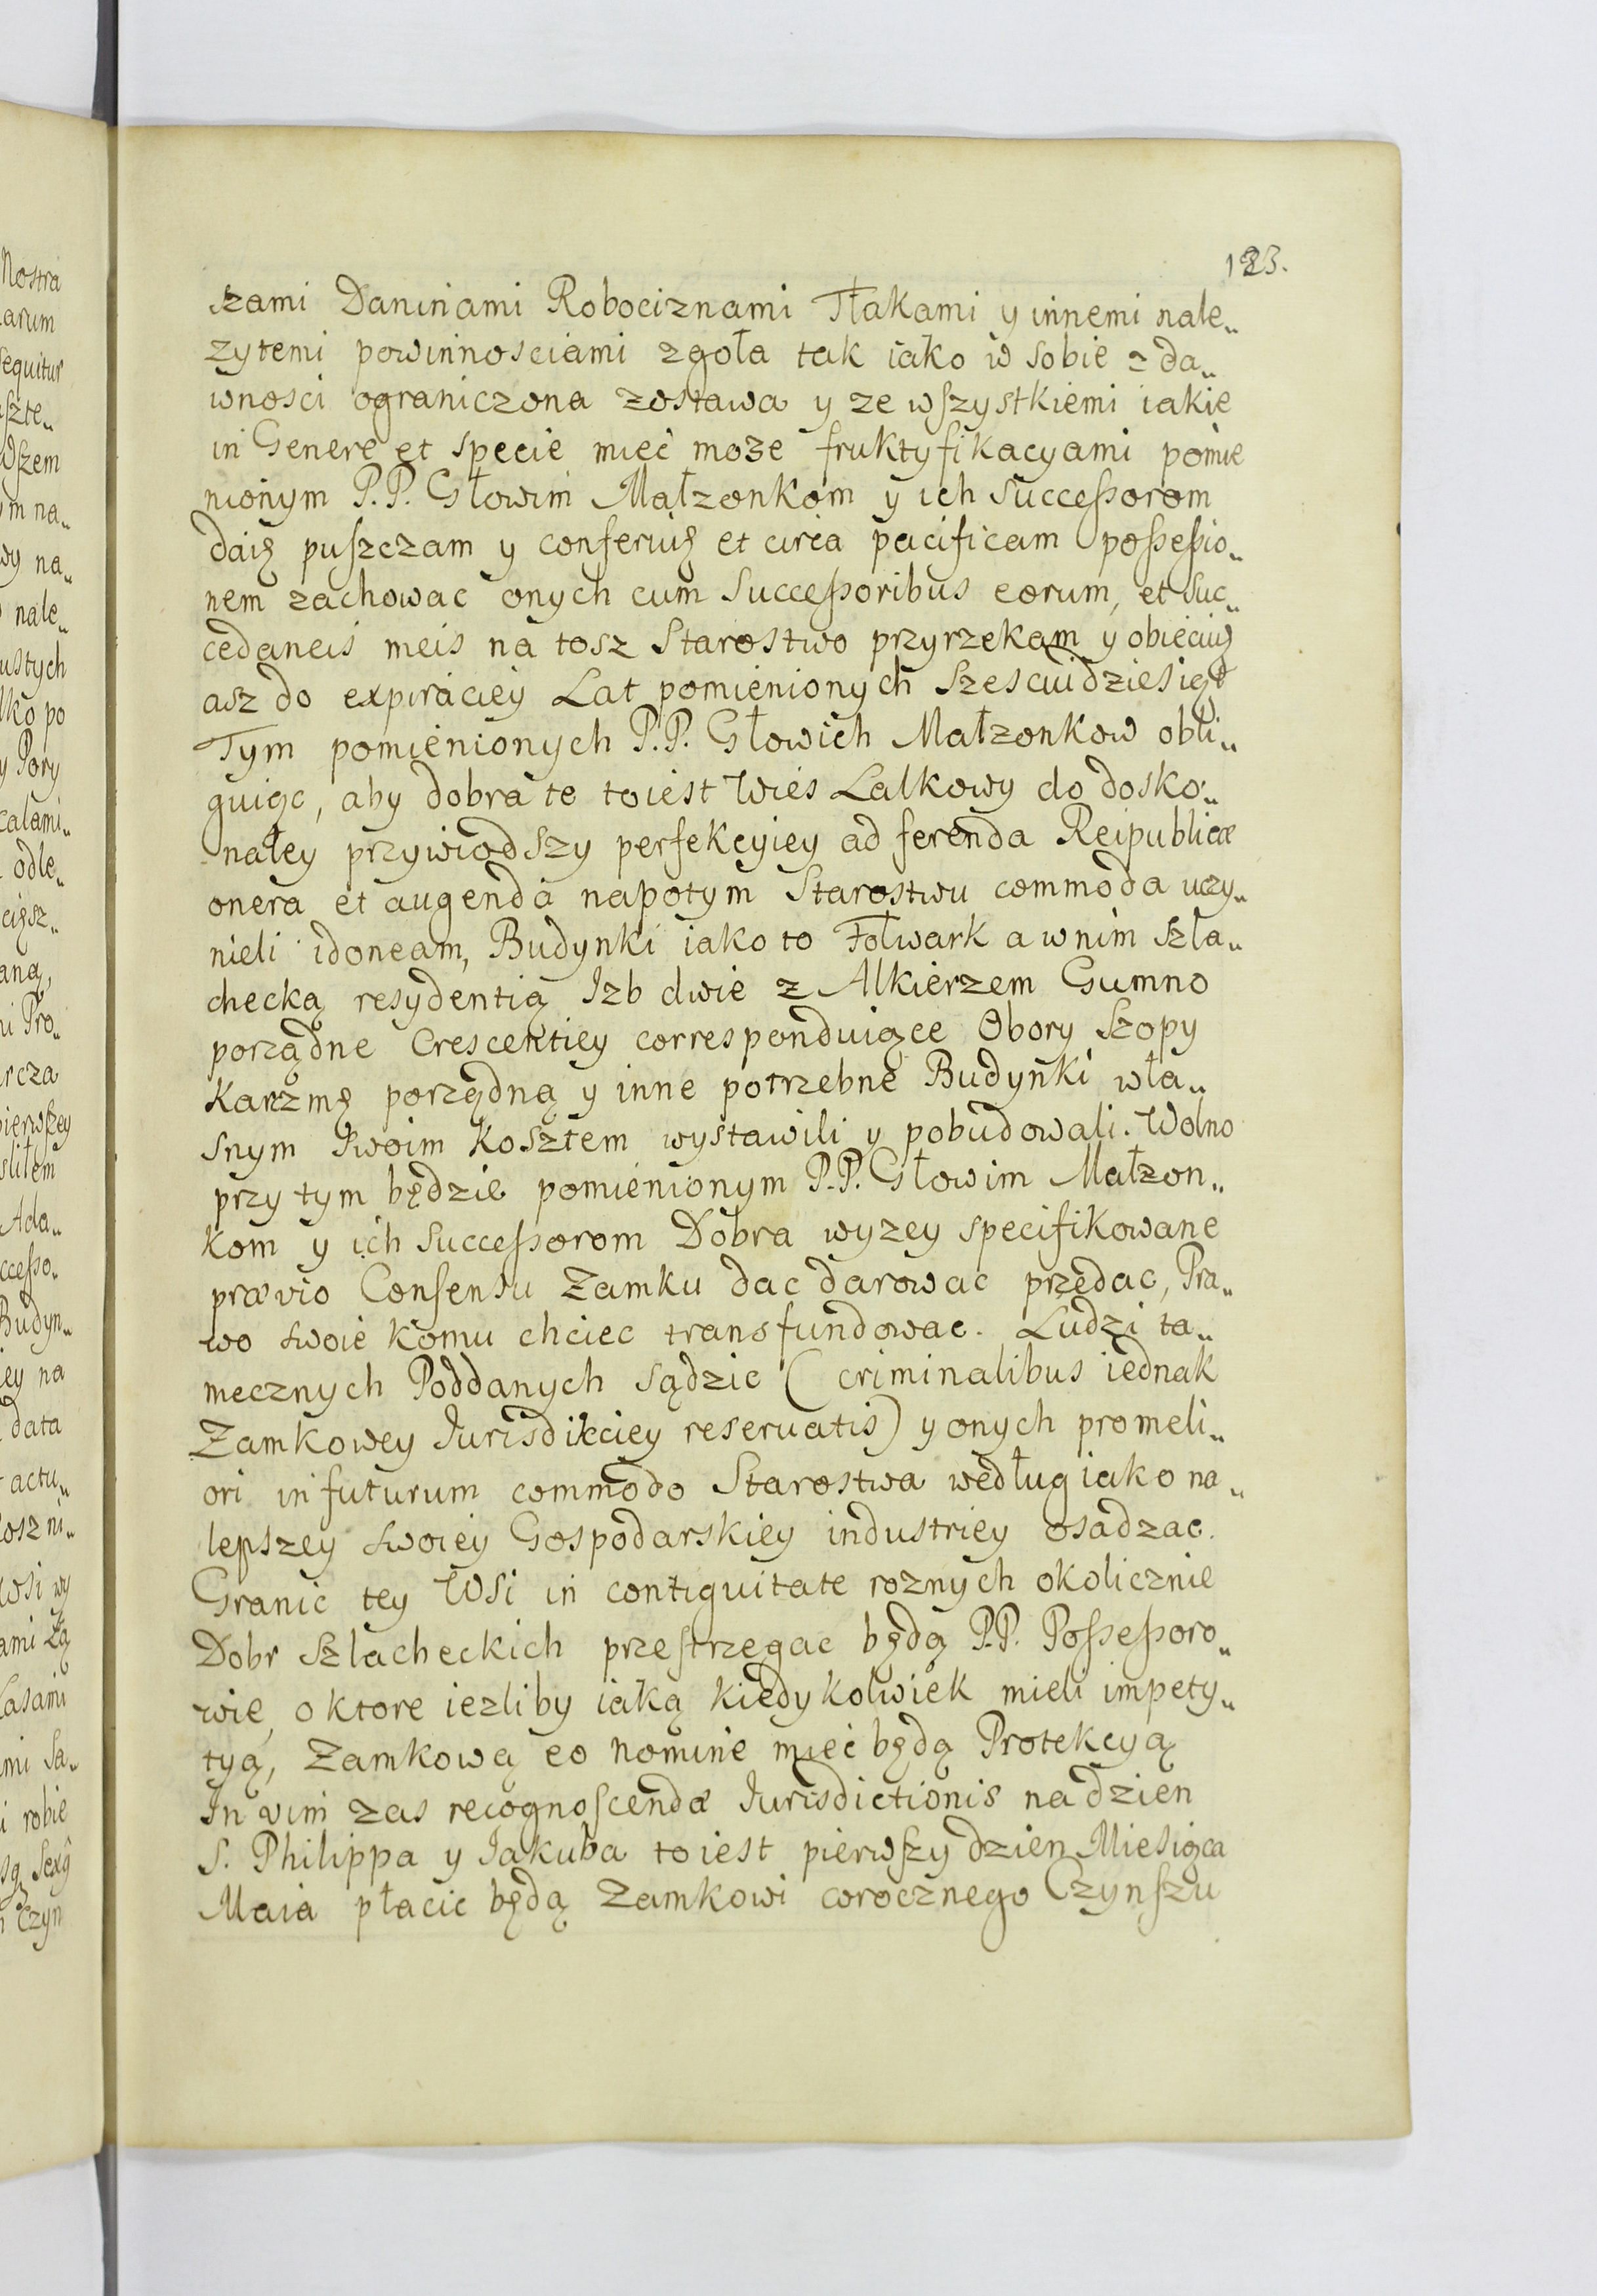 123.
szami Daninami Robociznami Tłakami y innemi nale„
zytemi powinnosciami zgoła tak iako w sobie z da„
wnosci ograniczona zostawa y ze wſzystkiemi iakie
in Genere et specie miec moze fruktyfikacyami pomie
nionym P.P. Głowim Małzonkom y ich Succeſsorom
daię puſzczam y conferuię et circa pacificam poſseſsio„
nem zachowac onych cum Succeſsoribus eorum, et Suc„
cedaneis meis na tosz Starostwo przyrzekam y obiecuię
asz do expiraciey Lat pomienionych Szesciudziesiąt
Tym pomienionych P.P. Głowich Małzonkow obli„
guiąc, aby dobra te toiest Wies Lalkowy do dosko„
nałey przywiodszy perfekcyiey ad ferenda Reipublicæ
onera et augenda napotym Starostwu commoda uczy„
nieli idoneam, Budynki iako to Folwark a wnim Szła„
checką resydentią Izb dwie z Alkierzem Gumno
porządne Crescentiey correspenduiące Obory Szopy
Karzmę porządną y inne potrzebne Budynki wła„
snym swoim Kosztem wystawili y pobudowali. Wolno
przy tym będzie pomienionym P.P. Głowim Małzon„
kom y ich Succeſsorom Dobra wyzey specifikowane
prævio Conſensu Zamku dac darowac przedac, Pra„
wo swoie komu chciec transfundowac. Ludzi ta„
mecznych Poddanych sądzic (criminalibus iednak
Zamkowey Iurisdikciey reseruatis) y onych pro meli„
ori in futurum commodo Starostwa według iako na„
lepszey swoiey Gospodarskiey industriey osadzac.
Granic tey Wsi in contiguitate roznych okolicznie
Dobr Szlacheckich przeſtrzegac będą P.P. Poſseſsoro„
wie, o ktore iezliby iaką kiedykolwiek mieli impety„
tyą, Zamkową eo nomine miec będą Protekcyą
In vim zas recognoſcendæ Iurisdictionis na dzien
S. Philippa y Iakuba toiest pierwſzy dzien Miesiąca
Maia płacic będą Zamkowi corocznego Czynſzu